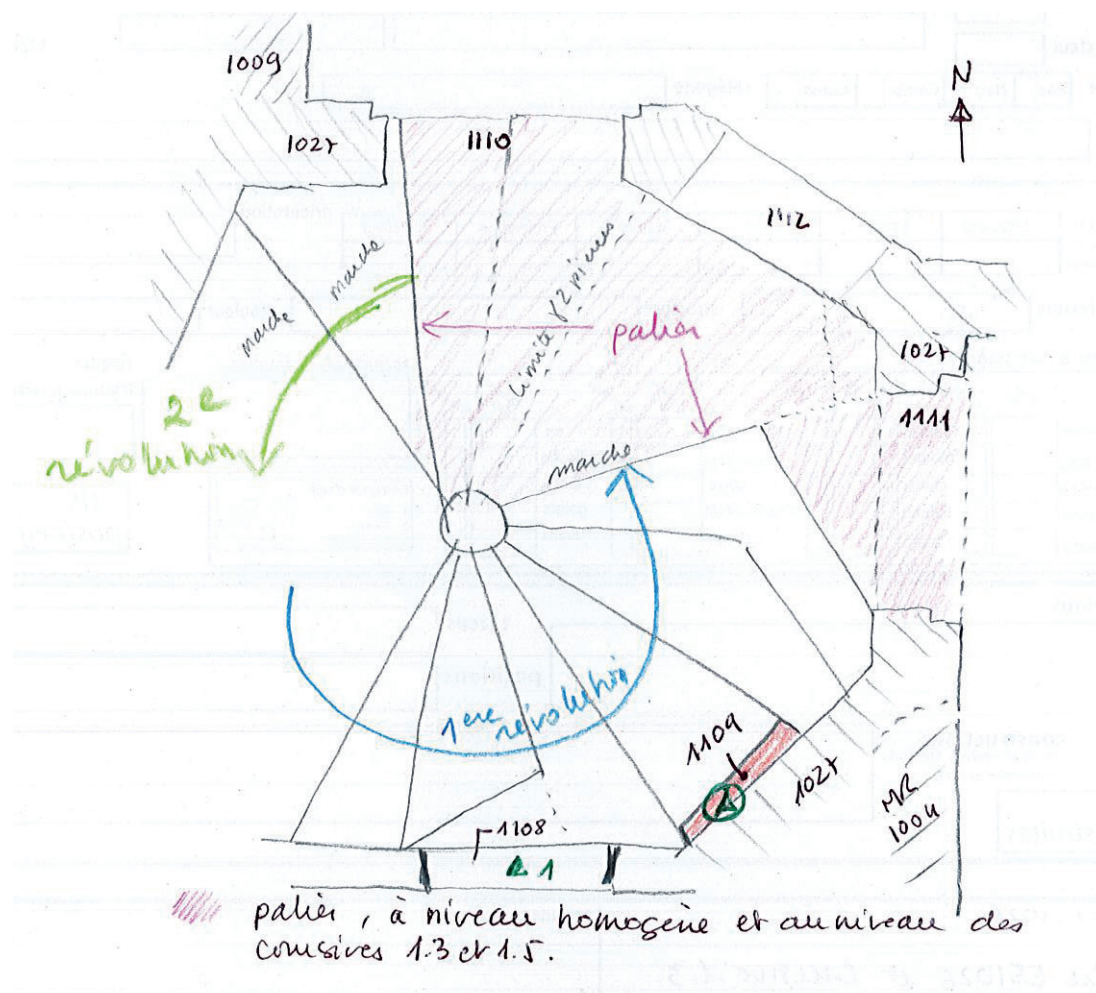 1009
N
1027
1110
1112
marche
marche
limite p/2 pièces
palier
1027
2e
révolution
1111
marche
1ere révolution
1109
1027
MR
1004
1108
R1
palier, à niveau homogène et au niveau des
coursives 1.3 et 1.5.